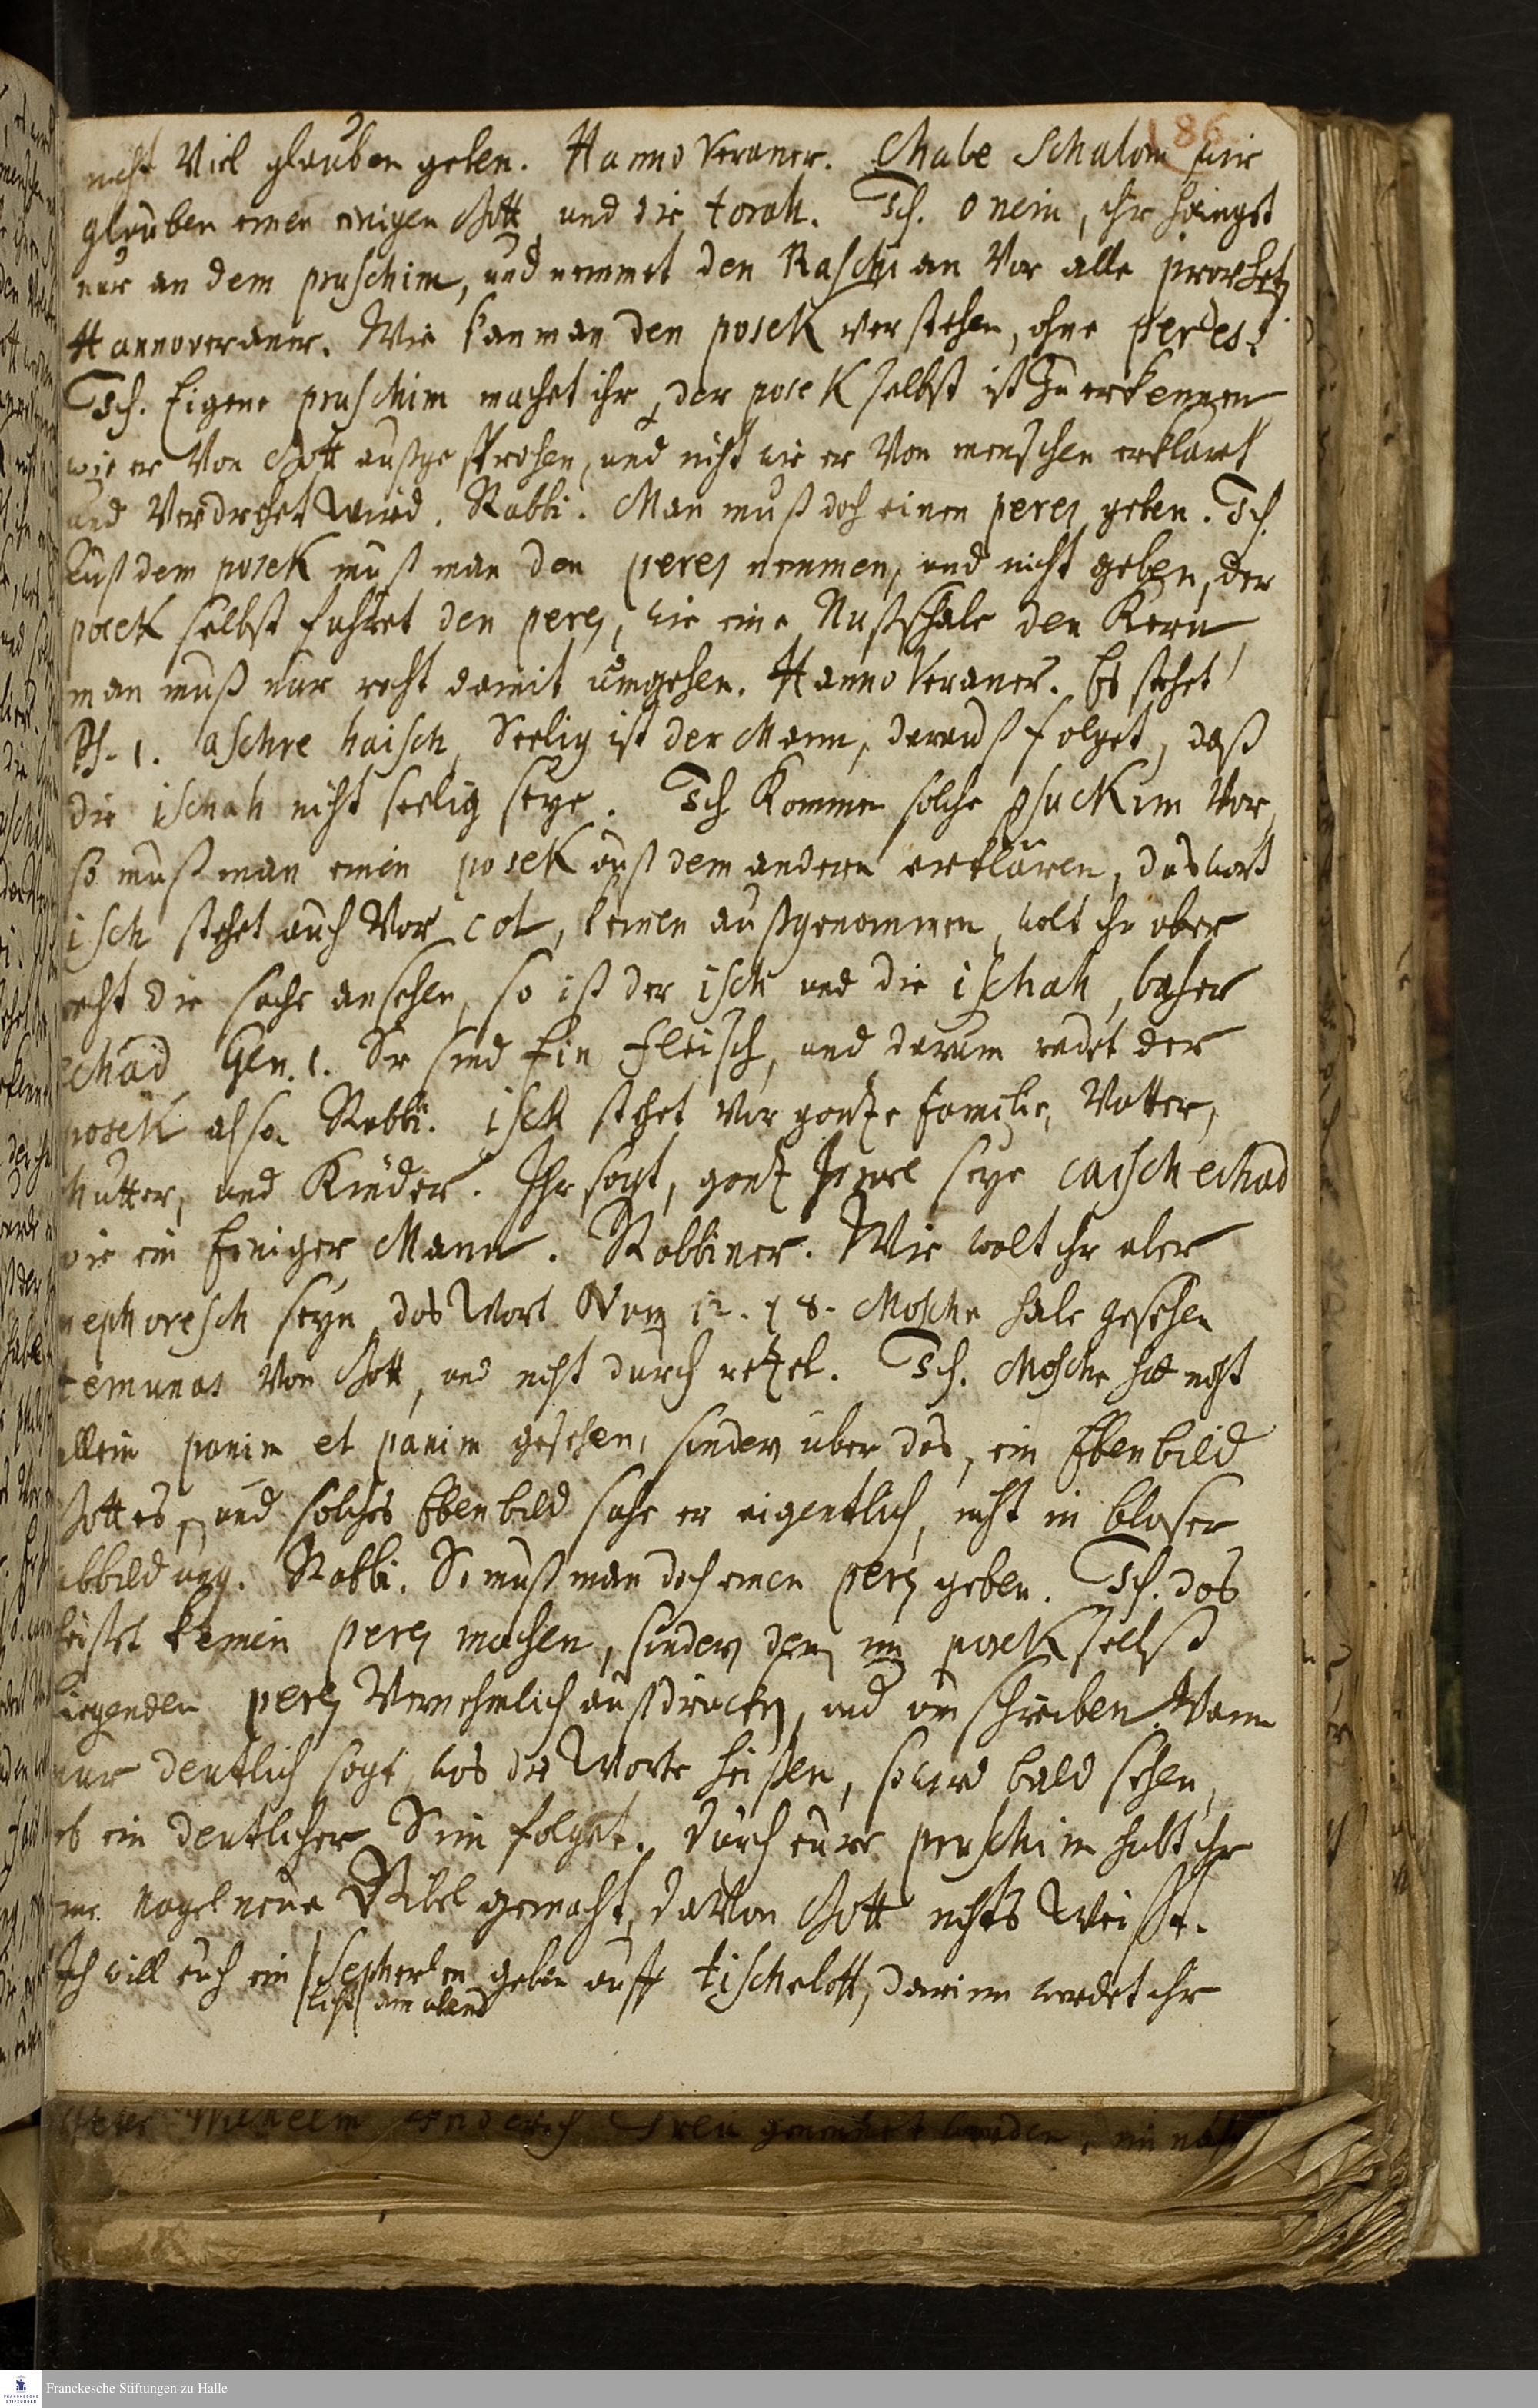 186
nicht Viel glauben geben. Hannoveraner. Chabe Schalom wir
glauben einen einigen Gott und die torah. Tsch. O nein, ihr hänget
nur an dem pruschim, und nemmet den Raschi an Vor alle
Hannoveraner. Wie kan man den posek verstehen, ohne peres?
Tsch. Eigene pruschim machet ihr, der posek selbst ist zu erkennen
wie er Von Gott außgesprochen, und nicht wie er Von menschen erklärt
und Verdrehet wird. Rabbi. Man muß doch einen perej geben. Tsch.
Auß dem posek muß man den perej nemmen, und nicht geben, der
posek selbst führet den perej, wie eine Nußschale den Kern
man muß nur recht damit umgehen. Hannoveraner. Es stehet
Ps. 1. aschre haisch, Seelig ist der Mann, darauß folget, daß
die ischah nicht seelig seye. Tsch. Kommen solche psuckim Vor,
so muß man einen posek auß dem andern erklären, das wort
isch stehet auch Vor col, keinen außgenommen, wolt ihr aber
recht die sache ansehen, so ist der isch und die ischah, baser
echad Gen. 1. Sie sind Ein Fleisch, und darum redet der
posek also. Rabbi. isch stehet Vor gantze familie, Vatter,
Mutter, und Kinder. Ihr sagt, gantz Israel seye caisch echad
wie ein Einiger Mann. Rabbiner. Wie wolt ihr aber
mephoresch seyn das Wort Num 12. 18. Mosche habe gesehen
temunas Von Gott, und nicht durch retzel. Tsch. Mosche hat nicht
allein panim el panim gesehen, sondern über das, ein Ebenbild
Gottes, und solches Ebenbild sahe er eigentlich, nicht in bloser
abbildung. Rabbi. So muß man doch einen perej geben. Tsch. das
heisset keinen perej machen, sondern den im posek selbst
liegenden perej Vernehmlich außdrucken, und umschreiben. Wann
nur deutlich sagt, was die Worte heißen, so wird bald sehen,
ob ein deutlicher Sinn folget. Durch eure pruschim habt ihr
eine Nagelneue Bibel gemacht, davon Gott nichts Weißt.
Ich will euch ein Sepherlen geben auff tischelott, darinn werdet ihr
licht am abend
Franckesche Stiftungen zu Halle